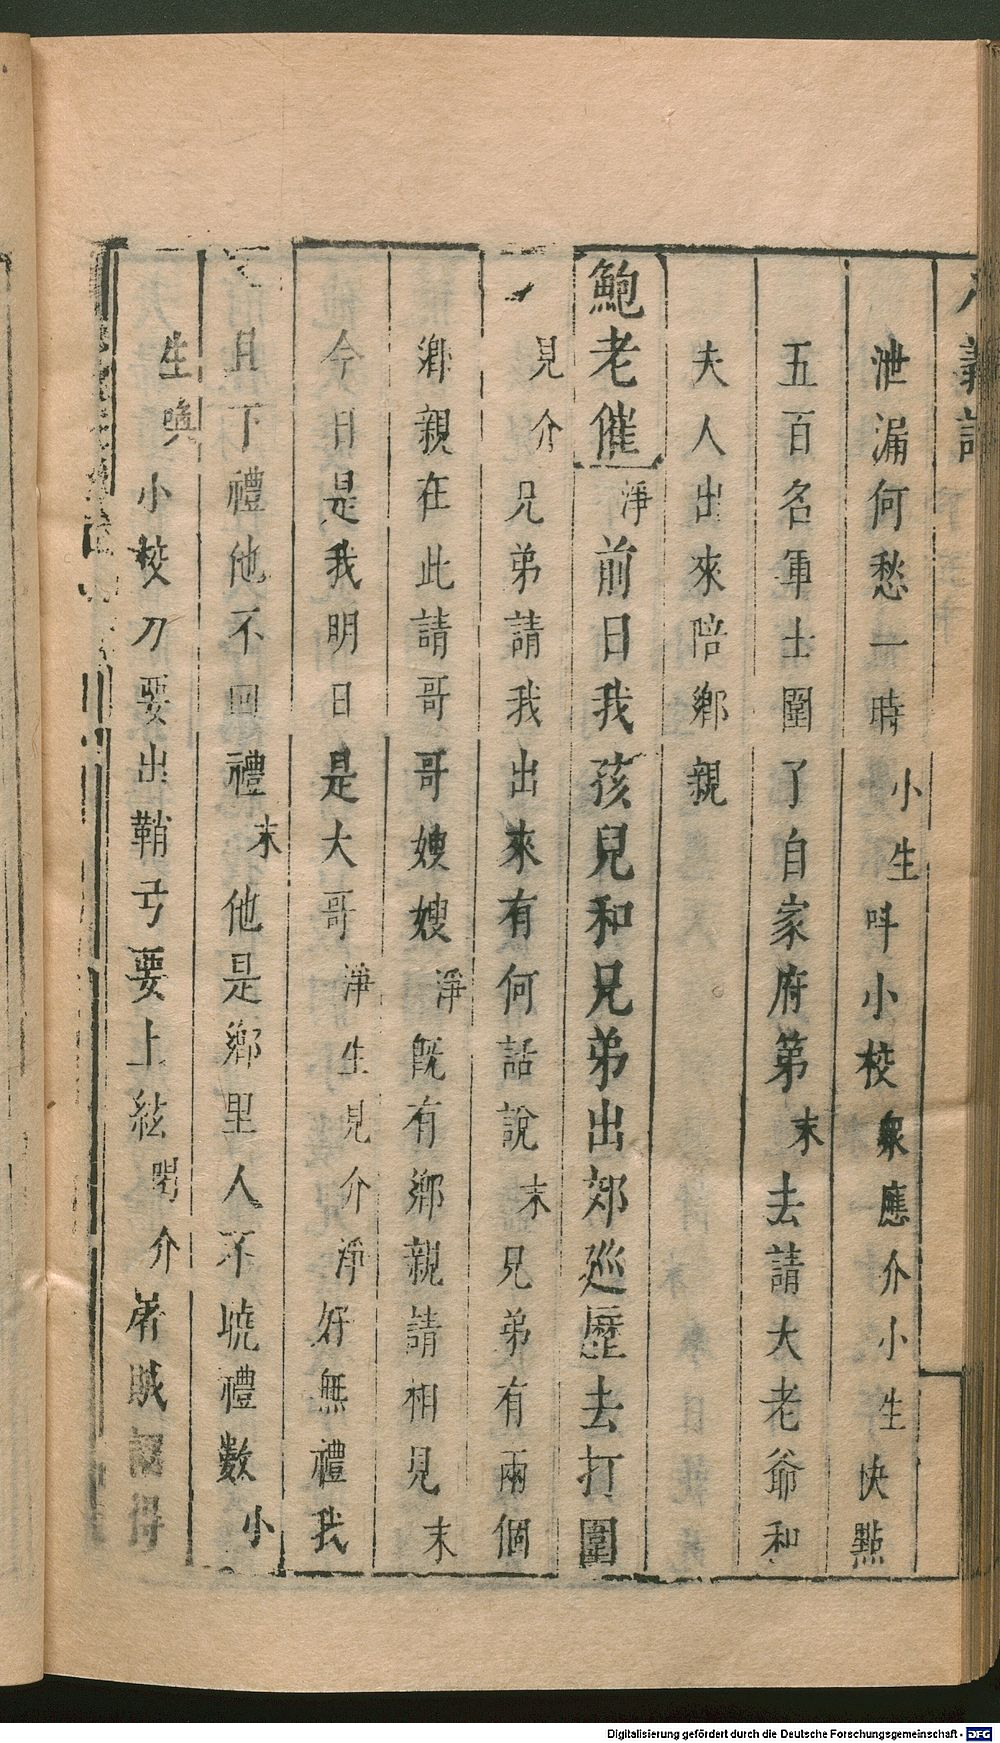 八義記
泄漏何愁一時小生呌小校衆應介小生快點
五百名軍士圍了自家府第末去請大老爺和
夫人出來陪鄉親
鮑老催淨前日我孩兒和兄弟出郊廵歷去打圍
見介兄弟請我出來有何話說末兄弟有兩個
鄉親在此請哥哥嫂嫂淨旣有鄉親請相見末
今日是我明日是大哥淨生見介淨好無禮我
且下禮他不回禮末他是鄉里人不曉禮數小
生喚小校刀要出鞘弓要上絃喝介屠賊認得
Digitalisierung gefördert durch die Deutsche Forschungsgemeinschaft - DFG